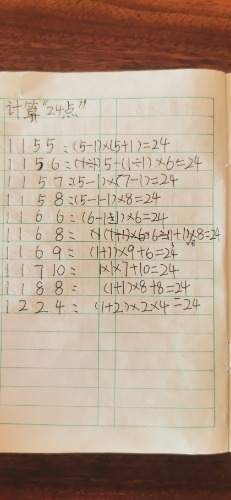 计算"24点"
1 1 5 5 = (5-1)×(5+1)=24
1 1 5 6 = 5-(1÷1)×6=24
1 1 5 7 = (5-1)×(7-1)=24
1 1 5 8 = (5-1-1)×8=24
1 1 6 6 = (6-1-1)×6=24
1 1 6 8 = ×8=24
1 1 6 9 = (1+1)×9+6=24
1 1 7 10 = 1×1×7+10=24
1 1 8 8 = (1+1)×8+8=24
1 2 2 4 = (1+2)×2×4=24